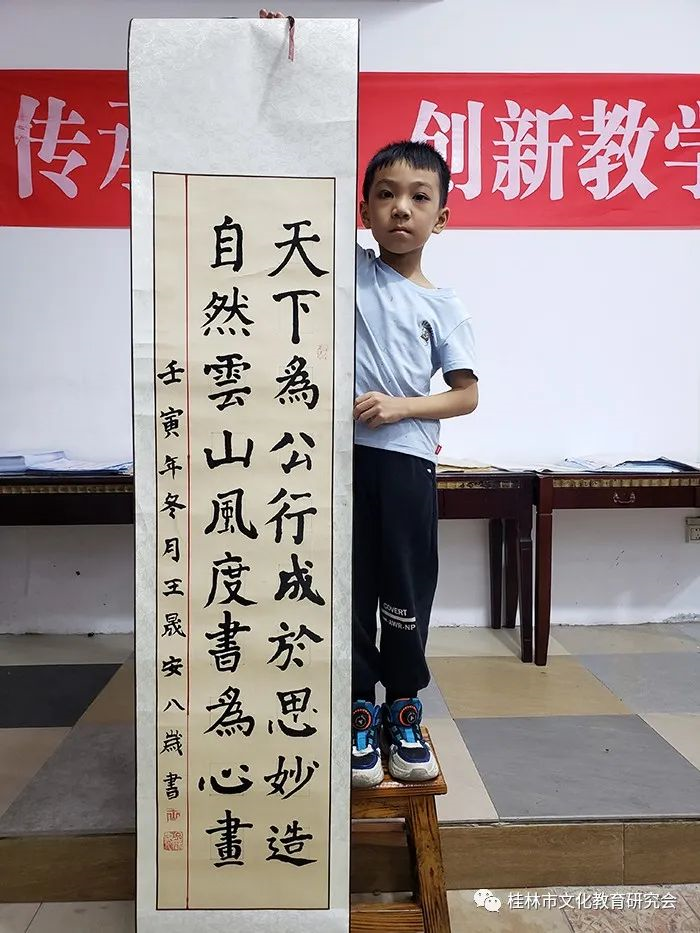 传承 创新教学
天下為公行成於思妙造
自然雲山風度書為心畫
壬寅年冬月王晟安八歲書
COVERT
AWR-NP
桂林市文化教育研究会